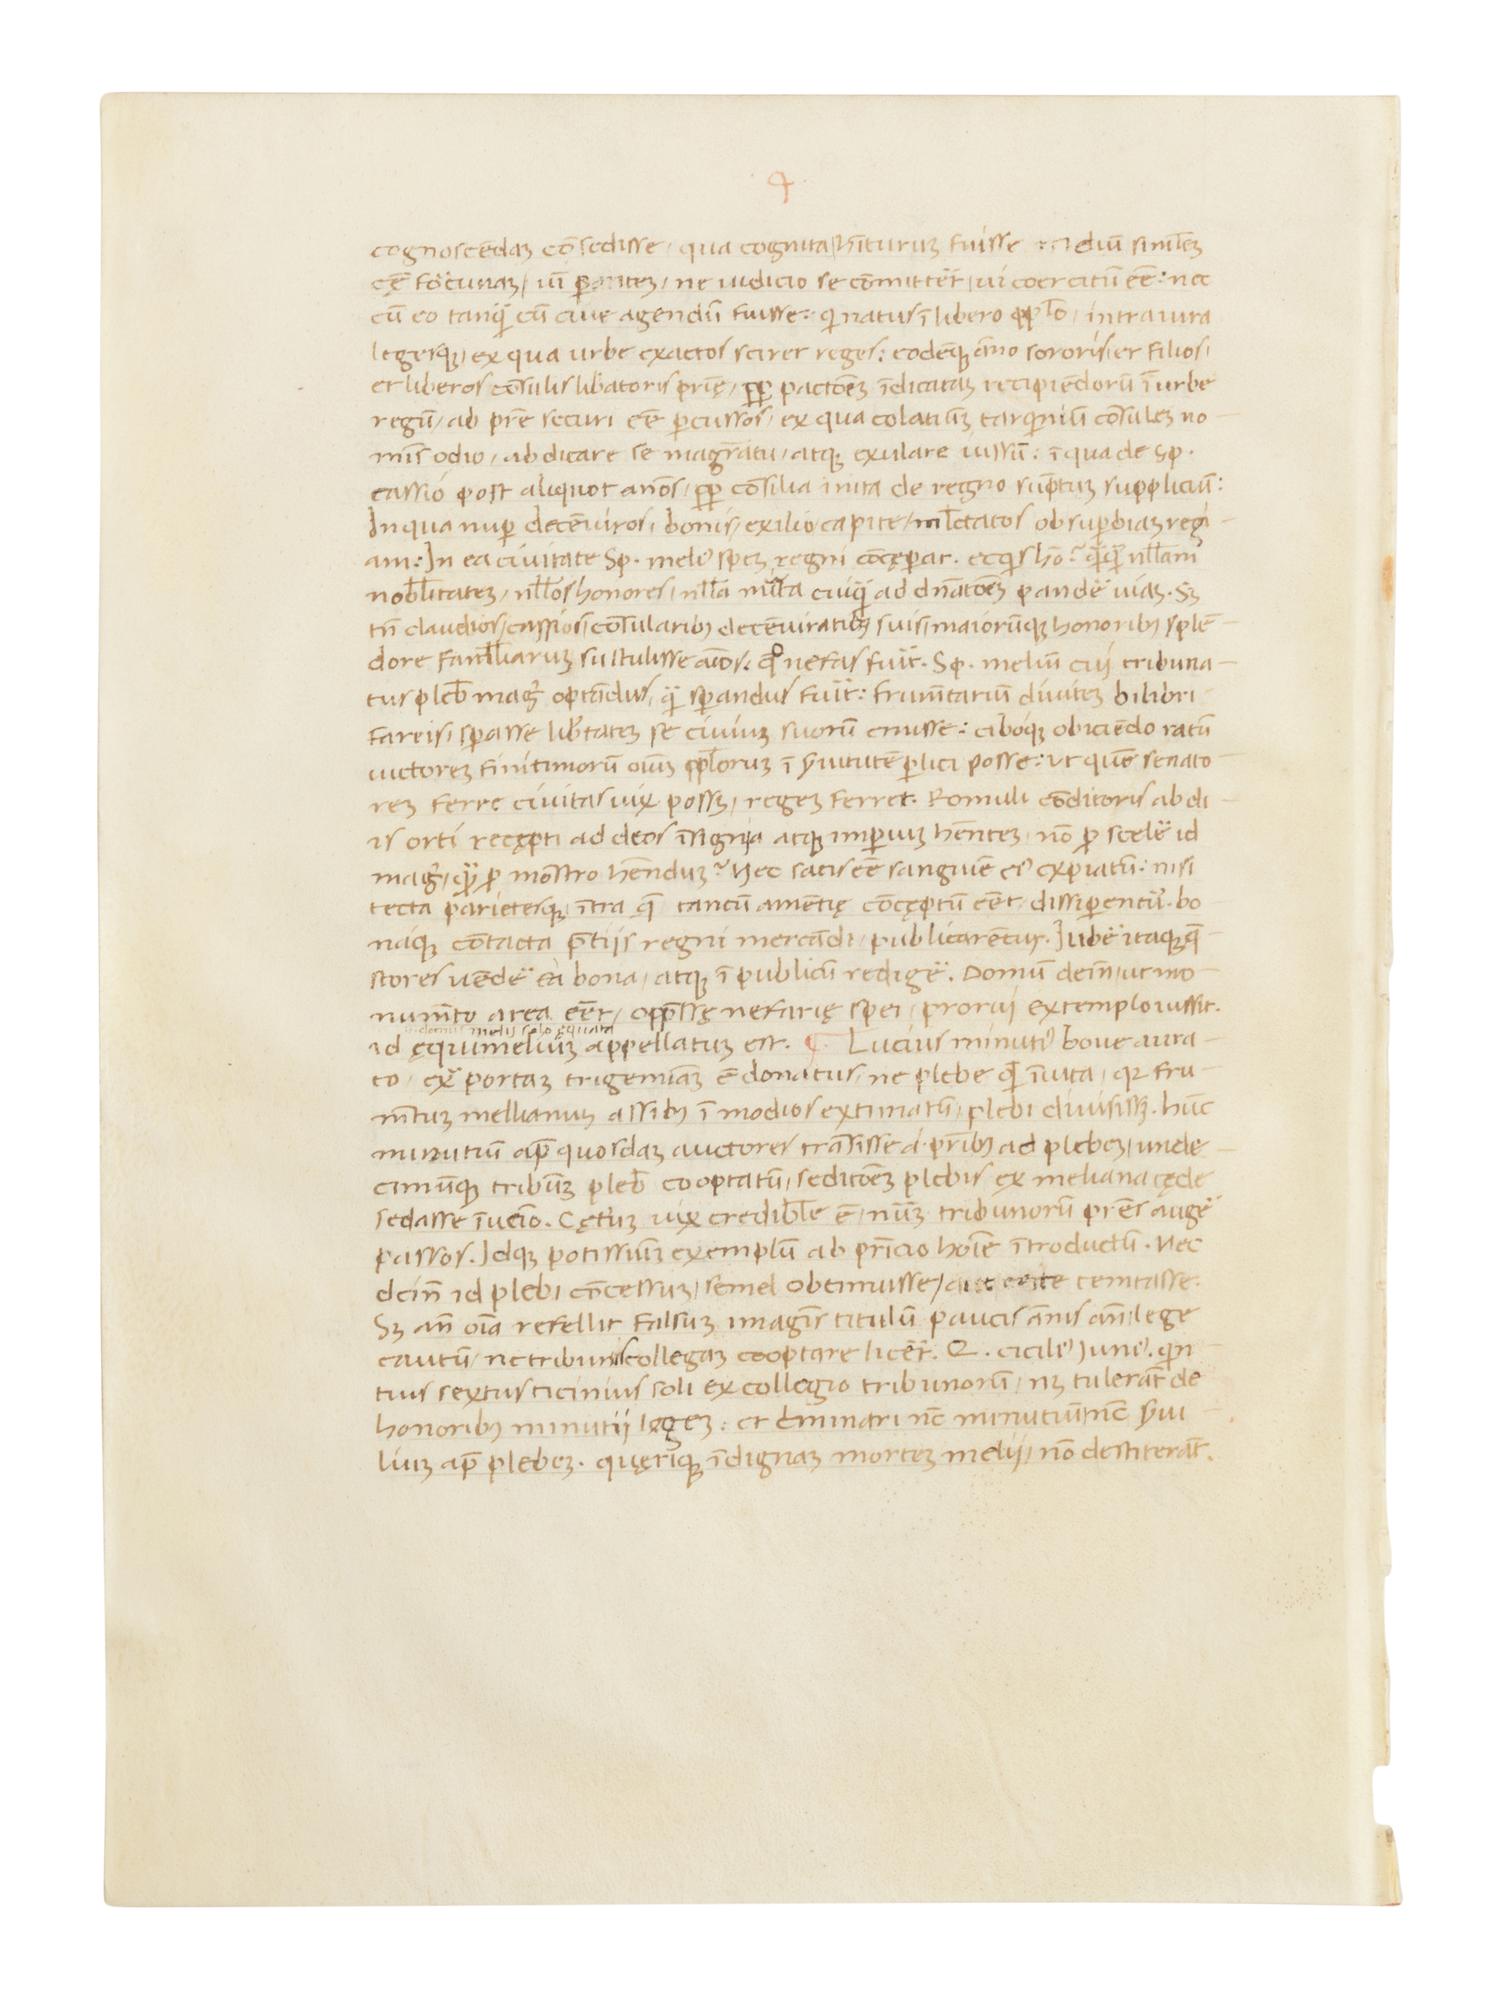 4
cognoscēdaʒ cōsedisse / qua cognita / hīturum fuisse : diuī similēʒ
eē fortunaʒ / uī parantēʒ / ne iudicio se cōmittēt / ui coercitū eē : nec
cū eo tanq̄ cū ciue agendū fuisse : qi natus ī libero pplo / intra iura
legesq; / ex qua urbe exactos sciret reges : eodēq; āno sororis et filios /
et liberos cōsulis libatoris prię / pp pactōeʒ īdicatāʒ recipiēdorū ī urbe
regū / ab pr̄e securi eē p̄cussos / ex qua colatiūʒ tarqniū cōsuleʒ no
mīs odio / abdicare se magr̄atu / atq; exulare iussū : ī qua de Sp ·
cassio post aliquot anōs / pp cōsilia inita de regno sūptuʒ suppliciū :
In qua nup decēuiros / bonis / exilio capite / mlctatos ob supbiaʒ regi
am : In ea ciuitate Sp · meli' speʒ regni cōcępat · ecqis hō ? q̄q̄ nllam
nobl̄itateʒ / nll̄os honores / nll̄a mīta cuiq̄ ad dn̄atōeʒ pandē uiaʒ · Sʒ
tn̄ claudios / cassios / cōsularibʒ decēuiratibʒ suis / maiorūq; honoribʒ splē
dore famil̄iaruʒ sustulisse aīos / qo nefas fuīt · Sp · meliū cui tribuna
tus pleb̄ mag optādus / q̄ sperandus fuīt : frumtariū diuiteʒ bilibri
farris / sp̄asse libtateʒ se ciuiuʒ suorū emisse : ciboq; obiciēdo ratū
uictoreʒ finitimorū oīuʒ pp̄loruʒ ī s̄uitutē plici posse : ut quē senato
reʒ ferre ciuitas uix possʒ / regeʒ ferret · Romuli cōditoris ab di
is orti recępti ad deos īsignia atq; imperiuʒ hēnteʒ / nō p scelē id
mag / q̄ p mōstro hēnduʒ ? Nec satis eē sanguīe ei' expiatū : nisi
tecta parietesq; / ītra q̄ tantū amētię cōcęptū eēt / dissiperentu᷑ · bo
naq; cōtacta p̄tiis regni mercādi / publicarētur · Iubē itaq; q̄
stores uēdē ea bona / atq; ī publicū redigē · Domū dein̄ / ut mo
numt̄o area eēt / opp̄ssę nefarię spei / prorui extemplo iussit ·
domus melij solo ęquata
id ęqūimeliūʒ appellatuʒ est · ¶ Lucius minuti' boue aura
to / ex̄ portaʒ trigemīaʒ ē donatus / ne plebe qdē īuita / qr fru
mt̄uʒ melianuʒ assibʒ ī modios extimatū / plebi diuisissʒ · hūc
minutiū ap̄ quosdaʒ auctores trāsisse a p̄ribʒ ad plebeʒ / unde
cimūq; tribūʒ pleb̄ cooptatū / seditōeʒ plebis ex meliana cęde
sedasse īueīo · Cętuʒ uix credibl̄e ē / nūʒ tribunorū pr̄es augē
passos · Idq; potissiūʒ exemplū ab pr̄icio hoīe ītroductū · Nec
dein̄ id plebi cōcessuʒ / semel obtinuisse / aut certe temtasse ·
Sʒ an̄ oīa refellit falsuʒ imagīs titulū paucis ānis an̄ / lege
cautū / ne tribunis collegaʒ cooptare licēt · Q · cicili' Juni' · qin
tius sextus ticinius soli ex collegio tribunorū / nʒ tulerāt de
honoribʒ minutii legeʒ : et c̄minari nc̄ minutiū nc̄ s̄ui
liuʒ ap̄ plebeʒ · quęriq; īdignaʒ morteʒ melij / nō destiterāt ·